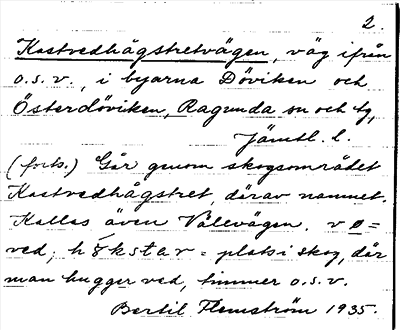 2.
Kastvedhågstretvägen, väg ifrån
o.s.v., i byarna Döviken och
Österdöviken, Ragunda sn och tg,
Jämtl. l.
(forts.) Går genom skogsområdet
Kastvedhågstret, därav namnet.
Kallas även Vålevägen. v ø =
ved; h k s t a r = plats i skog, där
man hugger ved, timmer o.s.v.
Bertil Flemström 1935.